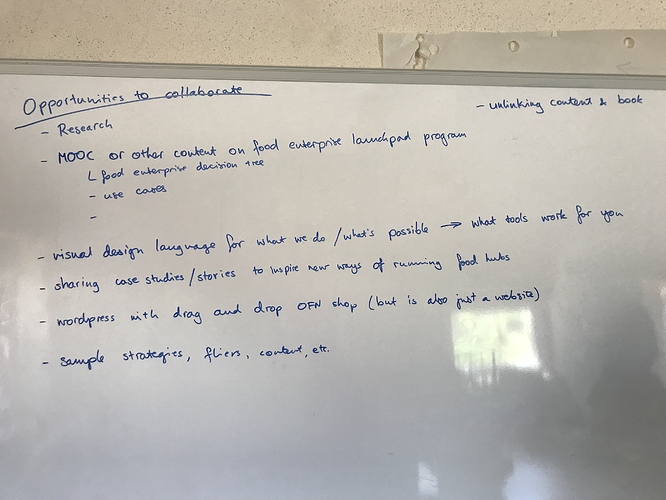 Opportunities to collaborate
- unlinking content & book
- Research
- MOOC or other content on food enterprise launchpad program
L food enterprise decision tree
- use cases
-
- visual design language for what we do / what's possible → what tools work for you
- sharing case studies / stories to inspire new ways of running food hubs
- wordpress with drag and drop OFN shop (but is also just a website)
- sample strategies, fliers, content, etc.